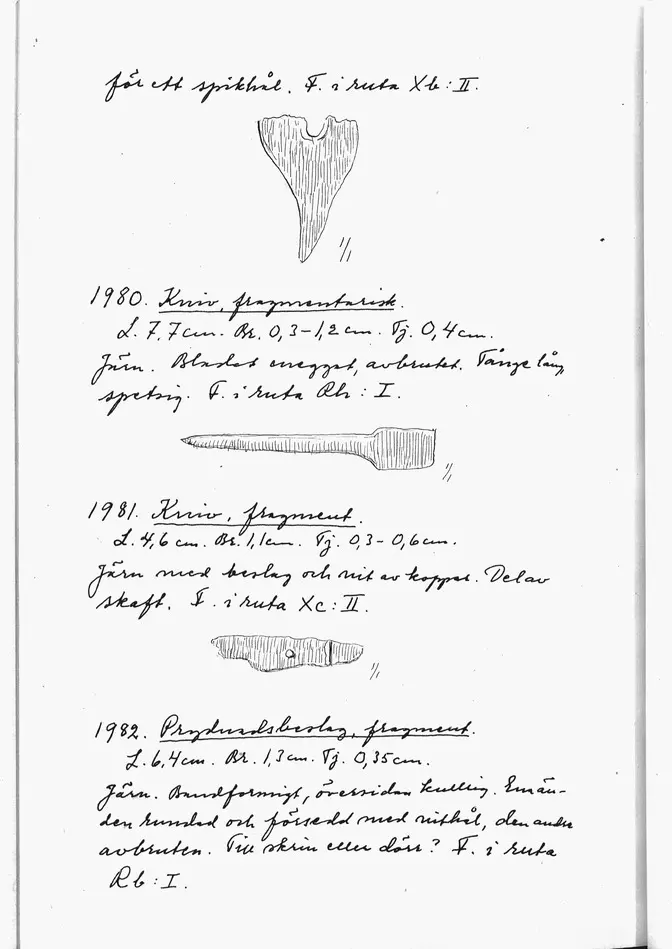 för ett spikhål. F. i ruta Xb:II.
1/1
1980. Kniv, fragmentarisk.
L. 7,7 cm. Br. 0,3-1,2 cm. Tj. 0,4 cm.
Järn. Bladet enegget, avbrutet. Tånge lång,
spetsig. F. i ruta Rh:I.
1/1
1981. Kniv, fragment.
L. 4,6 cm. Br. 1,1 cm. Tj. 0,3-0,6 cm.
Järn med beslag och nit av koppar. Del av
skaft. F. i ruta Xc:II.
1/1
1982. Prydnadsbeslag, fragment.
L. 6,4 cm. Br. 1,3 cm. Tj. 0,35 cm.
Järn. Bandformigt, översidan kullrig. Ena än-
den rundad och försedd med nithål, den andra
avbruten. Till skrin eller dörr? F. i ruta
Rb:I.